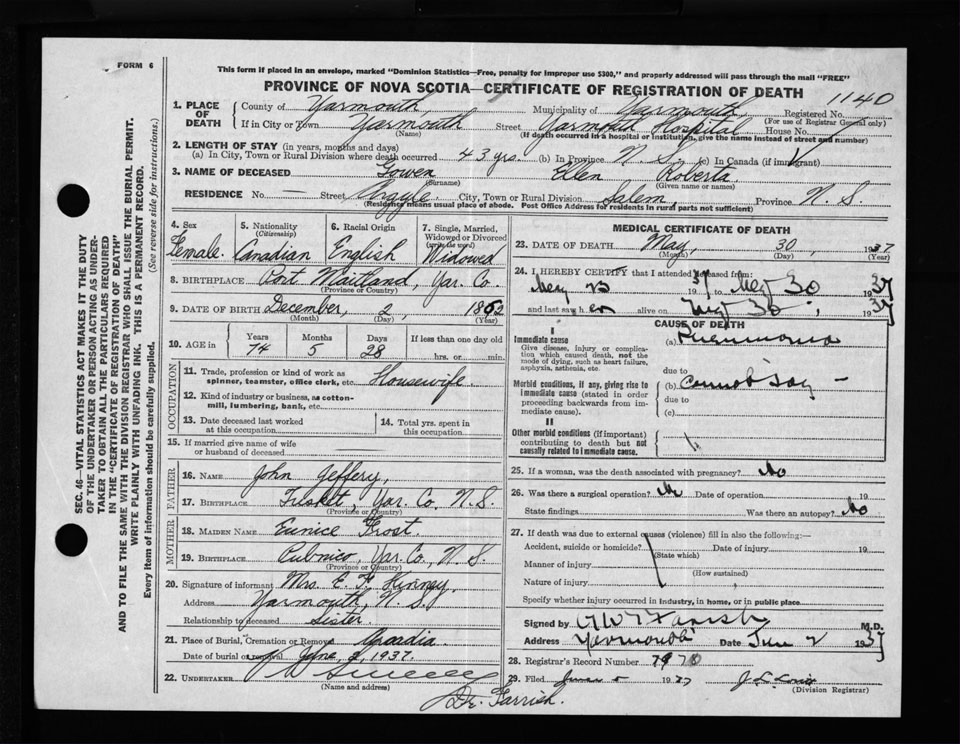 FORM 6
This form if placed in an envelope, marked "Dominion Statistics—Free, penalty for improper use $300," and properly addressed will pass through the mail "FREE"
PROVINCE OF NOVA SCOTIA—CERTIFICATE OF REGISTRATION OF DEATH
1140
1. PLACE OF DEATH
County of Yarmouth Municipality of Yarmouth Registered No.
(For use of Registrar General only)
If in City or Town Yarmouth Street Yarmouth Hospital House No.
(Name) (If death occurred in a hospital or institution, give the name instead of street and number)
2. LENGTH OF STAY (in years, months and days)
(a) In City, Town or Rural Division where death occurred 43 yrs. (b) In Province N. S. (c) In Canada (if immigrant)
3. NAME OF DECEASED Gowen Ellen Roberta.
(Surname) (Given name or names)
RESIDENCE No. — Street Argyle. City, Town or Rural Division Salem, Province N. S.
(Residence means usual place of abode. Post Office Address for residents in rural parts not sufficient)
4. Sex Female.
5. Nationality (Citizenship) Canadian
6. Racial Origin English
7. Single, Married, Widowed or Divorced (write the word) Widowed
8. BIRTHPLACE Port Maitland, Yar. Co.
(Province or Country)
9. DATE OF BIRTH December, 2, 1862
(Month) (Day) (Year)
10. AGE in Years 74 Months 5 Days 28 If less than one day old hrs. or min.
OCCUPATION
11. Trade, profession or kind of work as spinner, teamster, office clerk, etc. Housewife.
12. Kind of industry or business, as cotton-mill, lumbering, bank, etc.
13. Date deceased last worked at this occupation
14. Total yrs. spent in this occupation
15. If married give name of wife or husband of deceased
FATHER
16. NAME John Jeffery,
17. BIRTHPLACE Tusket, Yar. Co. N. S.
(Province or Country)
MOTHER
18. MAIDEN NAME Eunice Frost.
19. BIRTHPLACE Pubnico, Yar. Co., N. S.
(Province or Country)
20. Signature of informant Mrs. E. F. Kinney,
Address Yarmouth, N. S.
Relationship to deceased Sister.
21. Place of Burial, Cremation or Removal Arcadia
Date of burial or removal June 2, 1937.
22. UNDERTAKER
(Name and address)
Dr. Farrish.
MEDICAL CERTIFICATE OF DEATH
23. DATE OF DEATH May, 30, 1937
(Month) (Day) (Year)
24. I HEREBY CERTIFY that I attended deceased from:
19 37 to May 30 1937
and last saw h er alive on May 30, 1937
CAUSE OF DEATH
I
Immediate cause
Give disease, injury or complication which caused death, not the mode of dying, such as heart failure, asphyxia, asthenia, etc.
(a) Pneumonia
due to
Morbid conditions, if any, giving rise to immediate cause (stated in order proceeding backwards from immediate cause).
(b) Cannot say —
due to
(c)
II
Other morbid conditions (if important) contributing to death but not causally related to immediate cause.
25. If a woman, was the death associated with pregnancy? No
26. Was there a surgical operation? No Date of operation 19
State findings Was there an autopsy? No
27. If death was due to external causes (violence) fill in also the following:—
Accident, suicide or homicide? Date of injury 19
(State which)
Manner of injury
(How sustained)
Nature of injury
Specify whether injury occurred in industry, in home, or in public place
Signed by M.D.
Address Yarmouth Date June 2 1937
28. Registrar's Record Number
29. Filed 1937
(Division Registrar)
SEC. 46—VITAL STATISTICS ACT MAKES IT THE DUTY
OF THE UNDERTAKER OR PERSON ACTING AS UNDER-
TAKER TO OBTAIN ALL THE PARTICULARS REQUIRED
IN THE "CERTIFICATE OF REGISTRATION OF DEATH"
AND TO FILE THE SAME WITH THE DIVISION REGISTRAR WHO SHALL ISSUE THE BURIAL PERMIT.
WRITE PLAINLY WITH UNFADING INK. THIS IS A PERMANENT RECORD.
Every item of information should be carefully supplied. (See reverse side for instructions.)